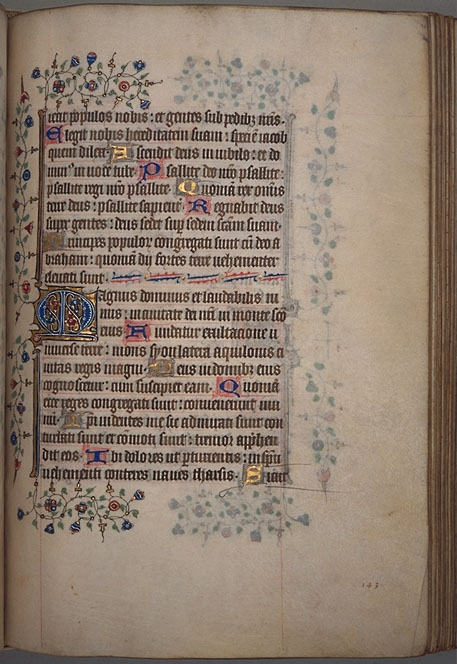 iecit populos nobis: et gentes sub pedibz nr̄is.
Elegit nobis hereditatem suam: speciē iacob
quem dilexit. Ascendit deus in iubilo: et do
minꝰ in uoce tube. Psallite deo nr̄o psallite:
psallite regi nr̄o psallite. Quoniā rex omnis
terre deus: psallite sapient̄. Regnabit deus
super gentes: deus sedet sup̄ sedem sc̄am suam.
Principes populoꝝ congregati sunt cū deo a
braham: quoniam dij fortes terre uehementer
eleuati sunt.
Magnus dominus et laudabilis ni
mis: in ciuitate dei nr̄i in monte sc̄o
eius. Fundatur exultacione u
niuerse terre: mons syon latera aquilonis ci
uitas regis magni. Deus in domibꝫ eius
cognoscetur: cum suscipiet eam. Quoniā
ecce reges congregati sunt: conuenerunt in u
num. Ipsi uidentes sic admirati sunt con
turbati sunt et cōmoti sunt: tremor app̄hen
dit eos. Ibi dolores ut p̄turientis: in sp̄u
uehementi conteres naues tharsis. Sicut
143